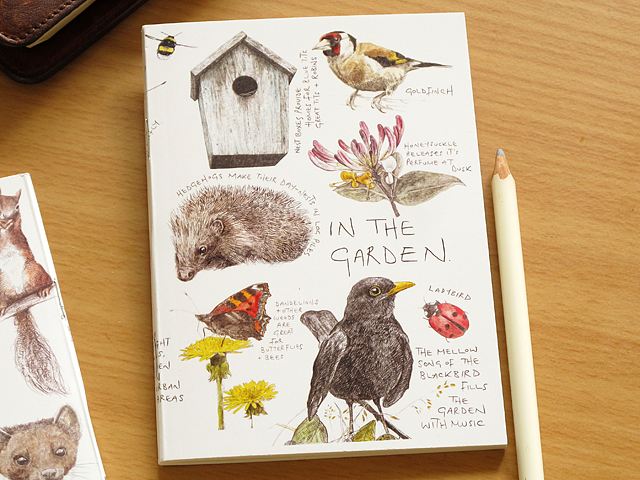 NEST BOXES PROVIDE
HOMES FOR BLUE TITS
GREAT TITS + ROBINS
GOLDFINCH
HONEYSUCKLE
RELEASES IT'S
PERFUME AT
DUSK
HEDGEHOGS MAKE THEIR DAY-NESTS IN LOG PILES
IN THE
GARDEN.
LADYBIRD
DANDELIONS
+ OTHER
WEEDS
ARE
GREAT
FOR
BUTTERFLIES
+ BEES
THE MELLOW
SONG OF THE
BLACKBIRD
FILLS
THE
GARDEN
WITH MUSIC